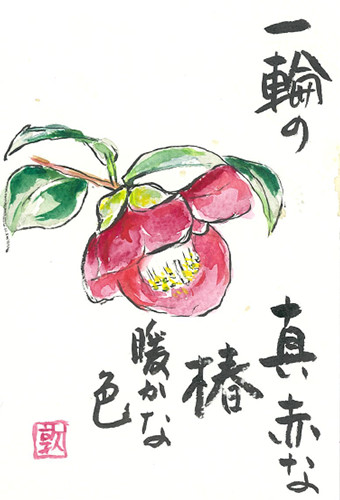 一輪の
真赤な
椿
暖かな
色
乾